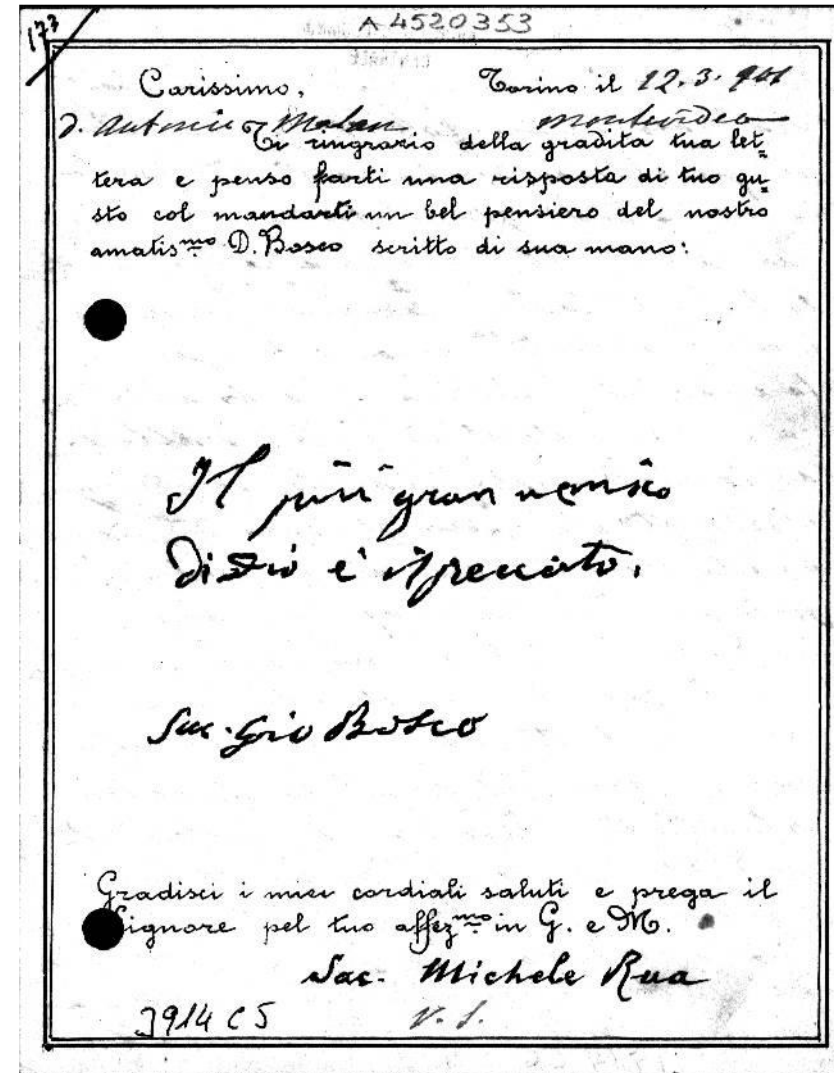 173
A 4520353
CENTRALE
Carissimo, Torino il 12.3.901
D. Antonio Malan Montevideo
Ti ringrazio della gradita tua let=
tera e penso farti una risposta di tuo gu=
sto col mandarti un bel pensiero del nostro
amatis.mo D. Bosco scritto di sua mano:
Il più gran nemico
di Dio è il peccato.
Sac. Gio Bosco
Gradisci i miei cordiali saluti e prega il
Signore pel tuo affez.mo in G. e M.
Sac. Michele Rua
3914 C5 V. S.